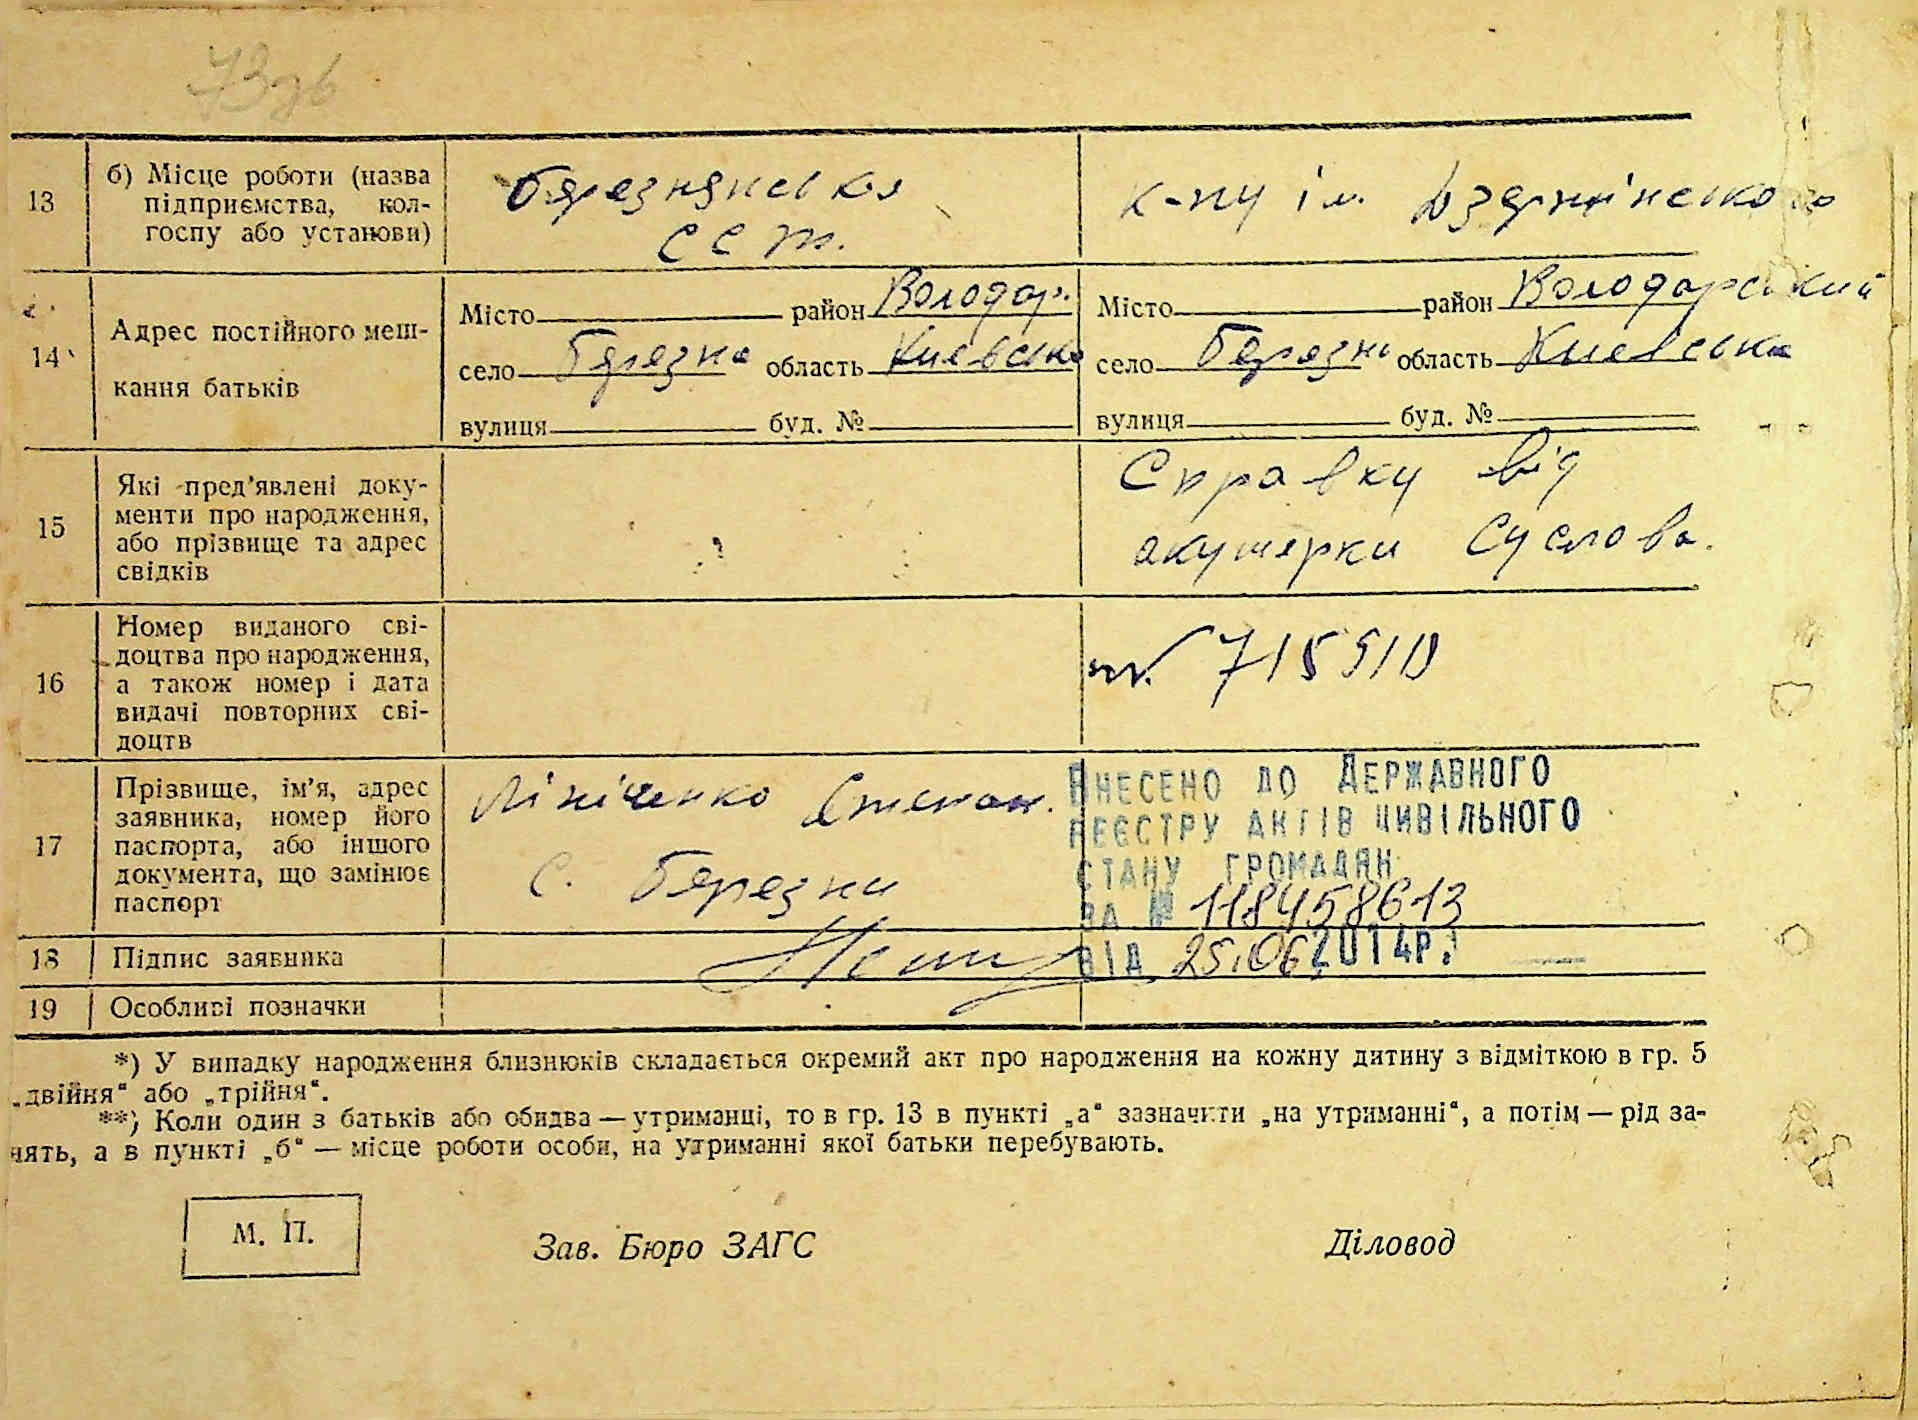 73зв
13 б) Місце роботи (назва підприємства, кол-госпу або установи)
Березнянська
ССТ.
к-пу ім. Дзержінського
14 Адрес постійного меш-
кання батьків
Місто район Володар.
село Березна область Киевська
вулиця буд. №
Місто район Володарський
село Березни область Киевська
вулиця буд. №
15 Які пред'явлені доку-
менти про народження,
або прізвище та адрес
свідків
Справку від
акушерки Суслова.
16 Номер виданого сві-
доцтва про народження,
а також номер і дата
видачі повторних сві-
доцтв
№ 715510
17 Прізвище, ім'я, адрес
заявника, номер його
паспорта, або іншого
документа, що замінює
паспорт
Лініченко Степан.
с. Березни
ВНЕСЕНО ДО ДЕРЖАВНОГО
РЕЄСТРУ АКТІВ ЦИВІЛЬНОГО
СТАНУ ГРОМАДЯН
ЗА № 118458613
ВІД 25.06.2014Р.
18 Підпис заявника
19 Особливі позначки
*) У випадку народження близнюків складається окремий акт про народження на кожну дитину з відміткою в гр. 5
„двійня“ або „трійня“.
**) Коли один з батьків або обидва — утриманці, то в гр. 13 в пункті „а“ зазначити „на утриманні“, а потім — рід за-
нять, а в пункті „б“ — місце роботи особи, на утриманні якої батьки перебувають.
М. П.
Зав. Бюро ЗАГС
Діловод